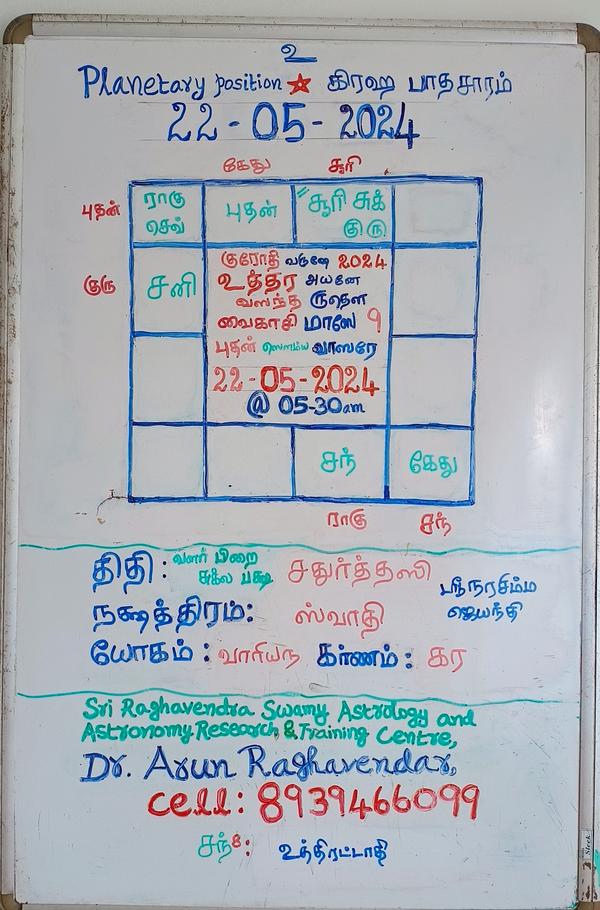 உ
Planetary position ★ கிரஹ பாதசாரம்
22-05-2024
கேது சூரி
புதன்
ராகு செவ்
புதன்
சூரி சுக் குரு
குரு
சனி
குரோதி வருஷே 2024
உத்தர அயனே
வஸந்த ருதௌ
வைகாசி மாஸே 9
புதன் ஸௌம்ய வாஸரே
22-05-2024
@ 05-30am
சந்
கேது
ராகு சந்
திதி: வளர் பிறை சுக்ல பக்ஷ சதுர்த்தஸி
நக்ஷத்திரம்: ஸ்வாதி
ஸ்ரீநரசிம்ம ஜெயந்தி
யோகம்: வாரியந கர்ணம்: கர
Sri Raghavendra Swamy Astrology and
Astronomy Research & Training Centre,
Dr. Arun Raghavendar,
cell: 8939466099
சந் 8: உத்திரட்டாதி